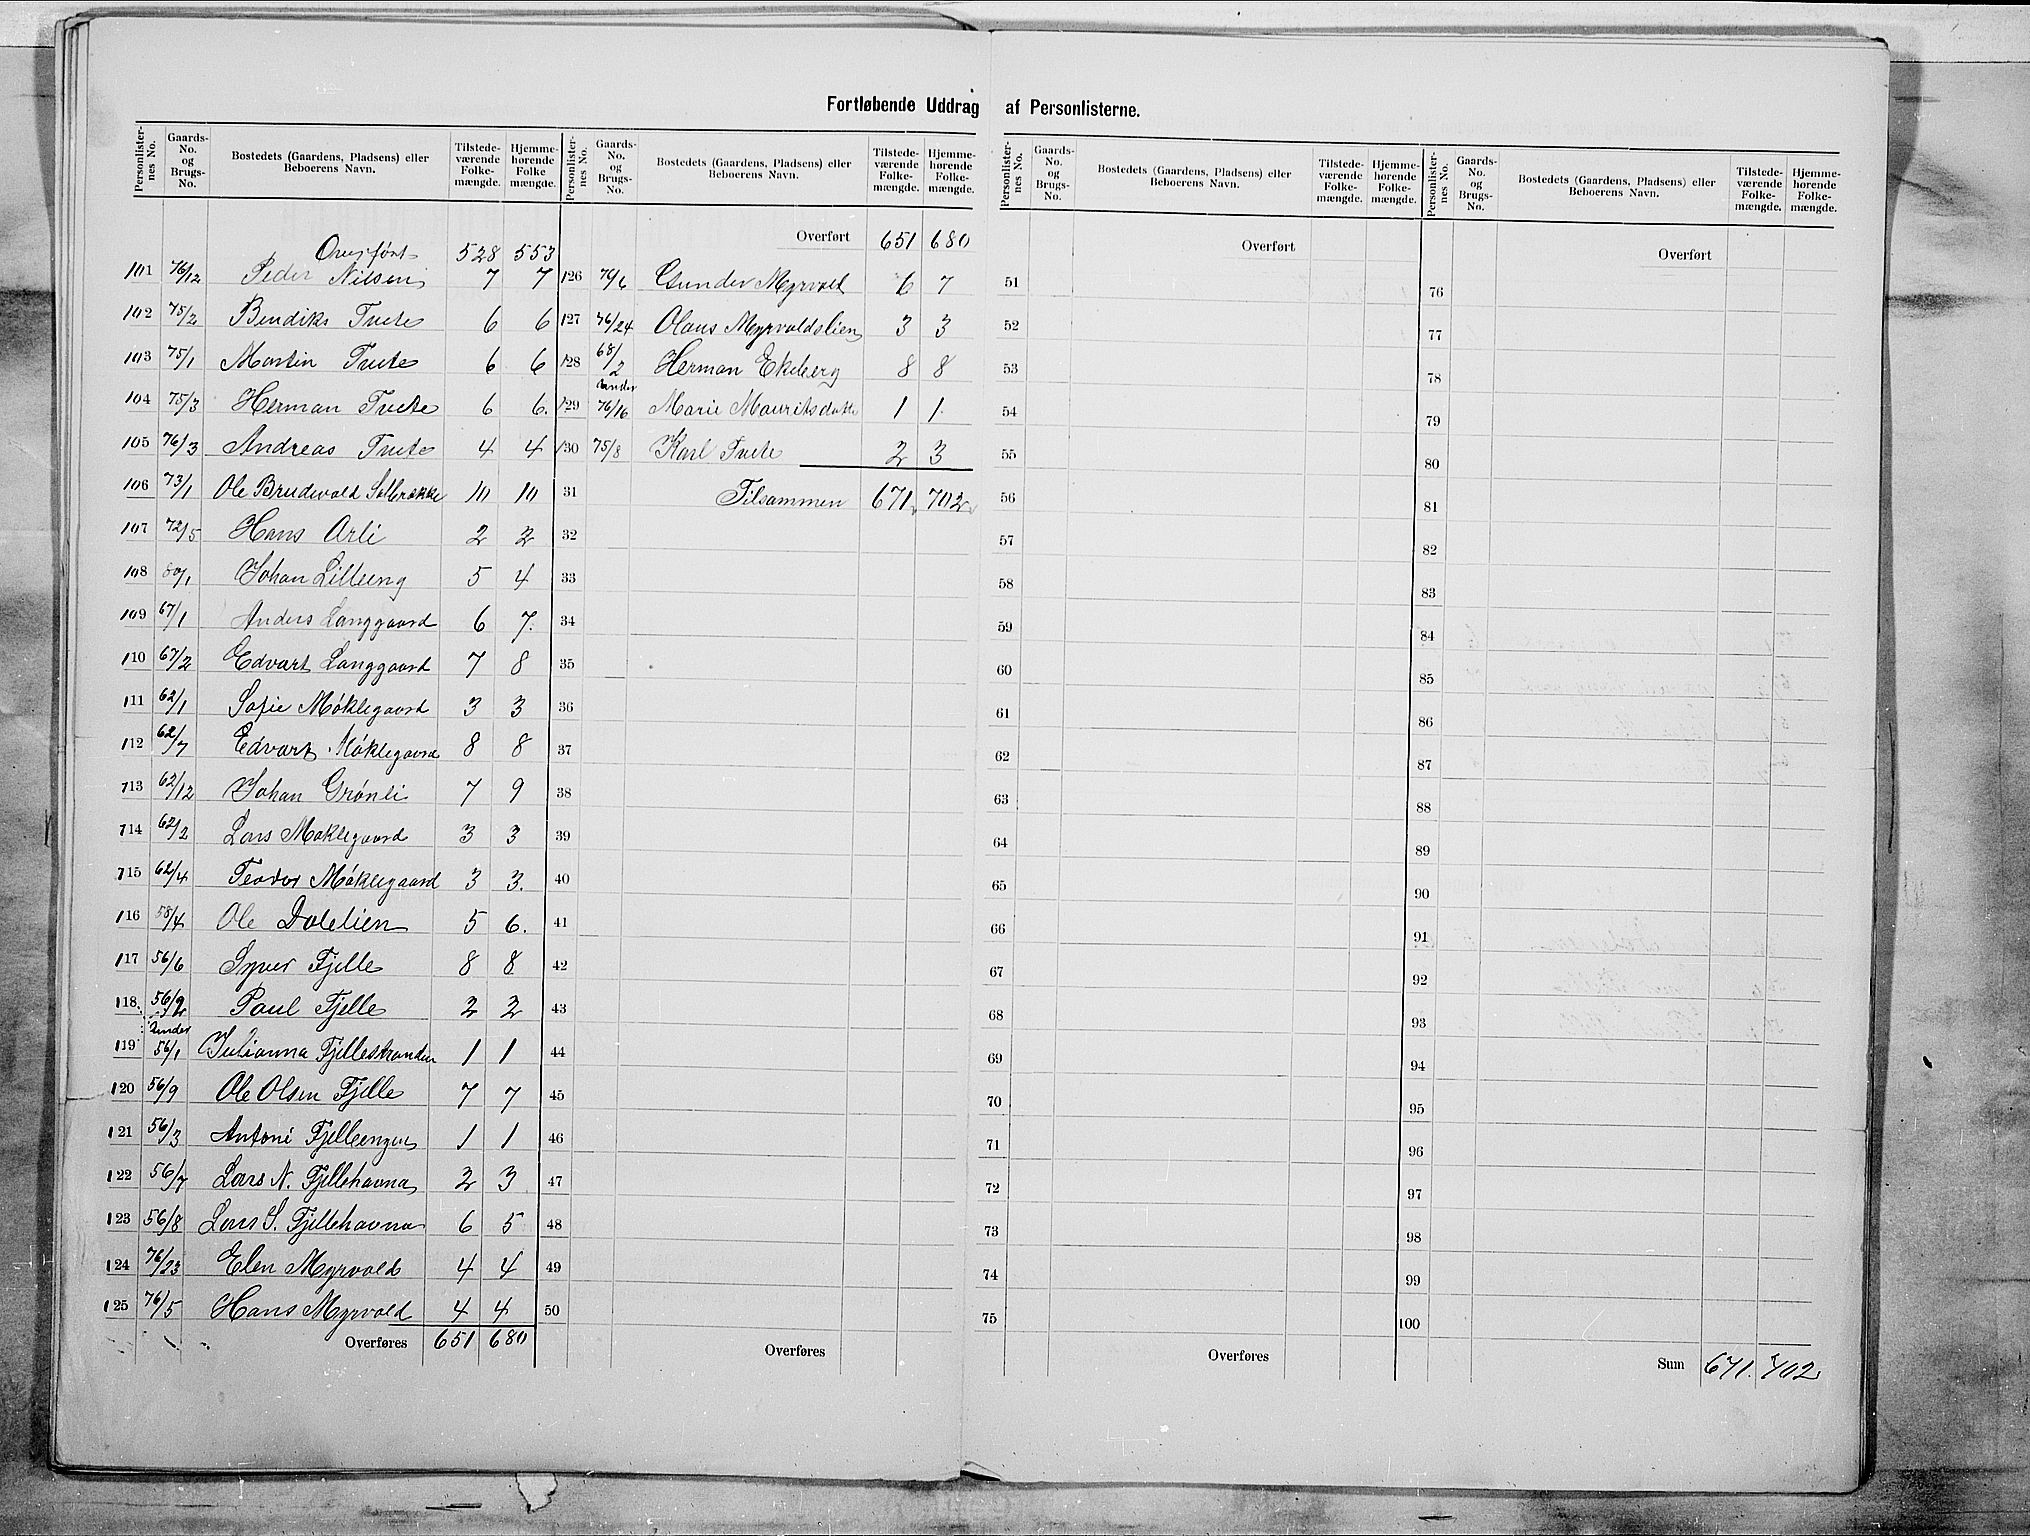 Fortløbende Uddrag af Personlisterne.
Personlisternes No. | Gaards-No. og Brugs-No. | Bostedets (Gaardens, Pladsens) eller Beboerens Navn. | Tilstedeværende Folkemængde. | Hjemmehørende Folkemængde.
Overført 528 553
101 76/12 Peder Nilsen 7 7
102 75/2 Bendiks Tvete 6 6
103 75/1 Martin Tvete 6 6
104 75/3 Herman Tvete 6 6.
105 76/3 Andreas Tvete 4 4
106 73/1 Ole Brudevold Solbrække 10 10
107 72/5 Hans Arli 2 2
108 80/1 Johan Lilleeng 5 4
109 67/1 Anders Langgaard 6 7.
110 67/2 Edvart Langgaard 7 8
111 62/1 Sofie Møklegaard 3 3
112 62/7 Edvart Møklegaard 8 8
113 62/12 Johan Grønli 7 9
114 62/2 Lars Møklegaard 3 3
115 62/4 Teodor Møklegaard 3 3.
116 58/4 Ole Dalelien 5 6.
117 56/6 Syver Fjelle 8 8
118 56/2 Paul Fjelle 2 2
119 Under 56/1 Julianna Fjellestranden 1 1
120 56/9 Ole Olsen Fjelle 7 7
121 56/3 Antoni Fjelleengen 1 1
122 56/7 Lars N. Fjellehavna 2 3
123 56/8 Lars S. Fjellehavna 6 5
124 76/23 Elen Myrvold 4 4
125 76/5 Hans Myrvold 4 4
Overføres 651 680
Personlisternes No. | Gaards-No. og Brugs-No. | Bostedets (Gaardens, Pladsens) eller Beboerens Navn. | Tilstedeværende Folkemængde. | Hjemmehørende Folkemængde.
Overført 651 680
126 79/6 Gunder Myrvold 6 7
127 76/24 Olaus Myrvoldslien 3 3
128 68/2 Herman Ekeberg 8 8
129 Under 76/16 Marie Mauritsdatter 1 1.
130 75/8 Karl Tvete 2 3
31 Tilsammen 671 702
32
33
34
35
36
37
38
39
40
41
42
43
44
45
46
47
48
49
50
Overføres
Personlisternes No. | Gaards-No. og Brugs-No. | Bostedets (Gaardens, Pladsens) eller Beboerens Navn. | Tilstedeværende Folkemængde. | Hjemmehørende Folkemængde.
Overført
51
52
53
54
55
56
57
58
59
60
61
62
63
64
65
66
67
68
69
70
71
72
73
74
75
Overføres
Personlisternes No. | Gaards-No. og Brugs-No. | Bostedets (Gaardens, Pladsens) eller Beboerens Navn. | Tilstedeværende Folkemængde. | Hjemmehørende Folkemængde.
Overført
76
77
78
79
80
81
82
83
84
85
86
87
88
89
90
91
92
93
94
95
96
97
98
99
100
Sum 671. 702